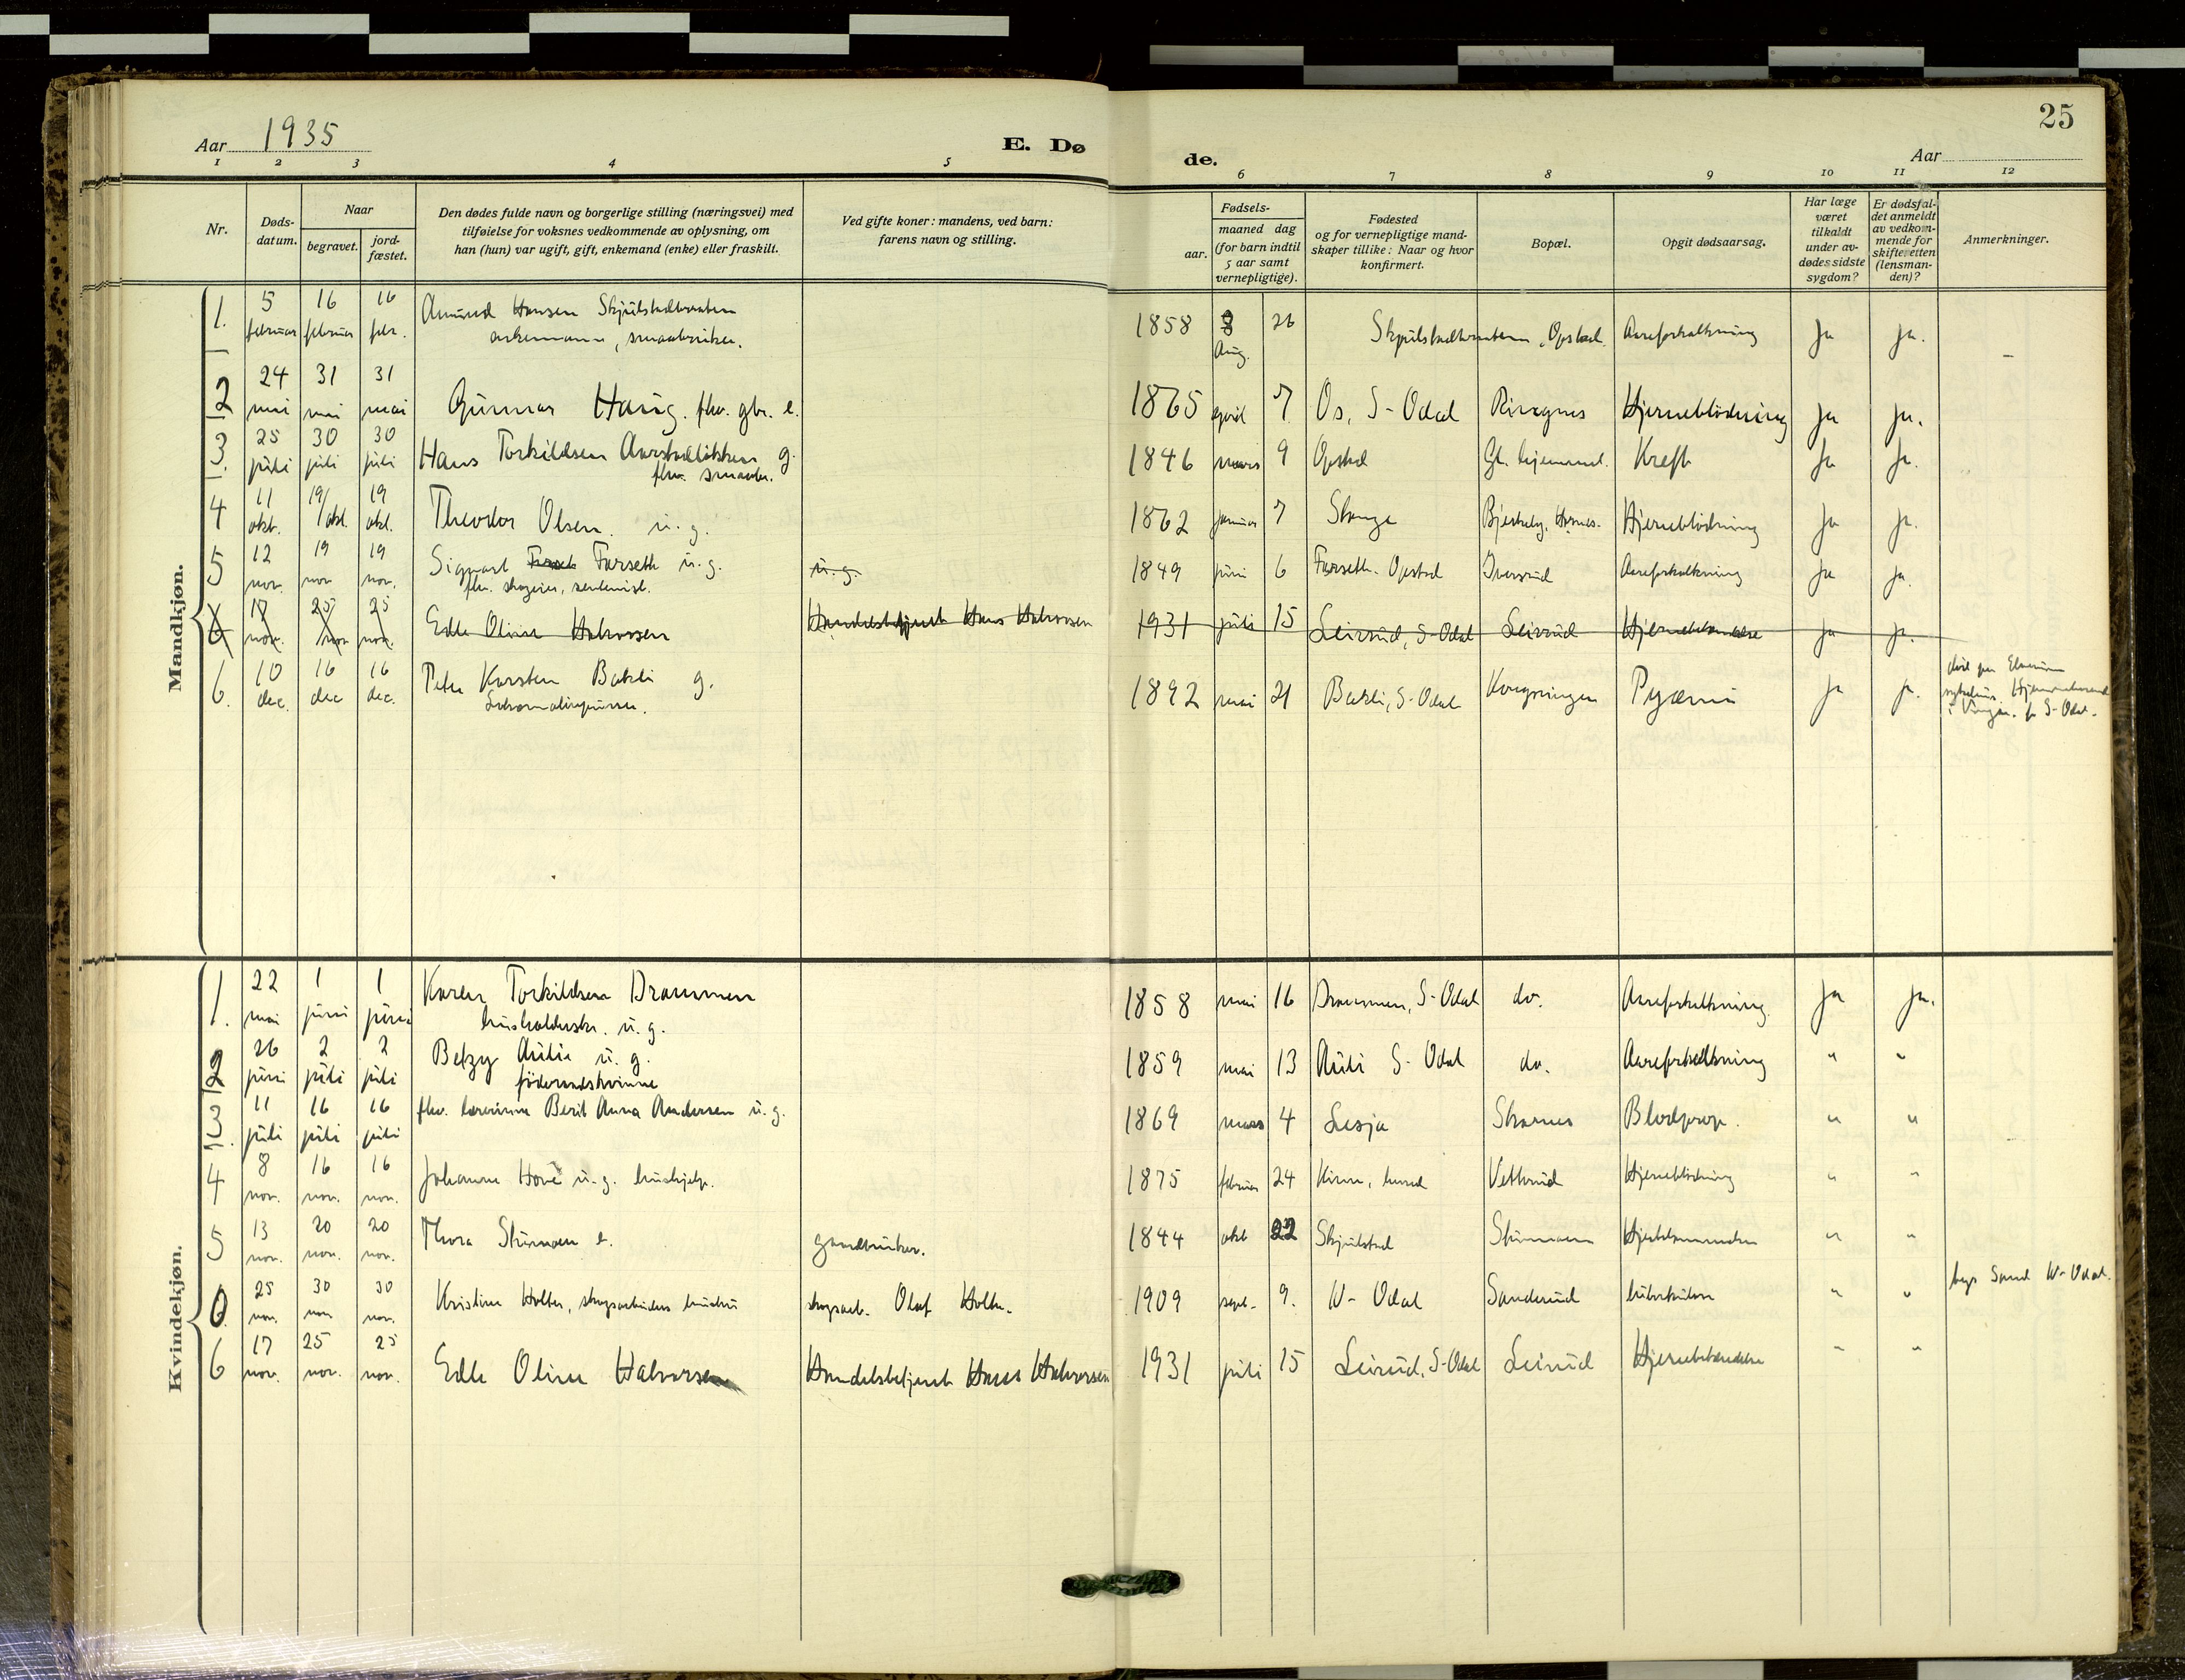 25
Aar 1935
E. Dø
de.
Aar
1 2 3 4 5 6 7 8 9 10 11 12
Nr.
Døds-
datum.
Naar
begravet.
jord-
fæstet.
Den dødes fulde navn og borgerlige stilling (næringsvei) med
tilføielse for voksnes vedkommende av oplysning, om
han (hun) var ugift, gift, enkemand (enke) eller fraskilt.
Ved gifte koner: mandens, ved barn:
farens navn og stilling.
Fødsels-
aar.
maaned dag
(for barn indtil
5 aar samt
vernepligtige).
Fødested
og for vernepligtige mand-
skaper tillike: Naar og hvor
konfirmert.
Bopæl.
Opgit dødsaarsag.
Har læge
været
tilkaldt
under av-
dødes sidste
sygdom?
Er dødsfal-
det anmeldt
av vedkom-
mende for
skifteretten
(lensman-
den)?
Anmerkninger.
Mandkjøn.
1. 5 februar 16 februar 16 febr. Amund Hansen Skjulstadbraaten 1858 Aug. 26 Skjulstadbraaten, Opstad. Aareforkalkning Ja Ja. –
enkemann, smaabruker.
2 24 mai 31 mai 31 mai Gunnar Haug. fhv. gbr. e. 1865 april 7 Os, S-Odal Ringnes Hjerneblödning Ja Ja.
3. 25 juli 30 juli 30 juli Hans Torkildsen Aarstadløkken g. 1846 mars 9 Opstad Gl. hjemmet. Kreft Ja Ja.
fhv. smaabr.
4 11 okt. 19/okt. 19 okt. Theodor Olsen. u. g. 1862 januar 7 Stange Bjerkely, Hernes. Hjerneblödning Ja Ja.
5 12 nov. 19 nov 19 nov. Sigvart Furseth u. g. u. g. 1849 juni 6 Furseth. Opstad Iversrud Aareforkalkning Ja Ja.
fhv. skogeier,
6 17 nov. 25 nov 25 nov. Edle Oline Halvorsen Handelsbetjent Hans Halvorsen 1931 juli 15 Leirrud, S-Odal Leirrud Hjernebetændelse Ja Ja.
6. 10 dec. 16 dec 16 dec. Peter Karsten Bakli g. 1892 mai 21 Bakli, S-Odal Kongsvinger Pyæmi Ja Ja. död paa Elverum
sykehus. Hjemmehørende
i Vinger. f. S-Odal.
Kvindekjøn.
1. 22 mai 1 juni 1 juni Karen Torkildsen Drammen 1858 mai 16 Drammen, S-Odal do. Aareforkalkning. Ja Ja.
husholderske. u. g.
2 26 juni 2 juli 2 juli Betzy Auli u. g. 1859 mai 13 Auli S-Odal do. Aareforkalkning " "
föderaadskvinne
3. 11 juli 16 juli 16 juli fhv. lærerinne Beril Anna Andersen u. g. 1869 mars 4 Lesja Skarnes Blodprop. " "
4 8 nov. 16 nov. 16 nov. Johanne Hove u. g. hushjelp. 1875 februar 24 Vettrud Hjerneblödning " "
5 13 nov. 20 nov. 20 nov. Thora Stummoen e. gaardbruker. 1844 okt 22 Skjulstad Stummoen " "
6 25 nov. 30 nov 30 nov. Kristine Holter, skogsarbeiders hustru skogsarb. Olaf Holter. 1909 sept. 9. N-Odal Sanderud tuberkulose " " begr Sand N-Odal.
6 17 nov. 25 nov. 25 nov. Edle Oline Halvorsen Handelsbetjent Hans Halvorsen 1931 juli 15 Leirrud, S-Odal Leirrud Hjernebetændelse " "